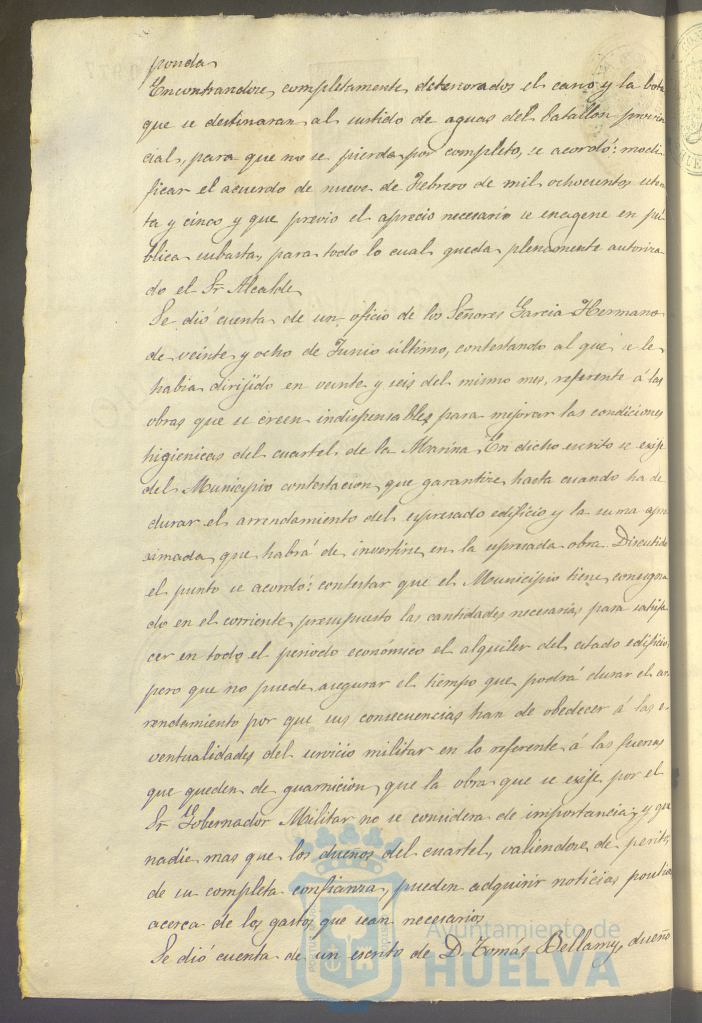 ponda
Encontrandose completamente deteriorados el carro y la bota
que se destinaran al surtido de aguas del batallon provin
cial, para que no se pierda por completo, se acordó: modi
ficar el acuerdo de nueve de Febrero de mil ochocientos ochen
ta y cinco y que previo el aprecio necesario se enagene en pú
blica subasta, para todo lo cual queda plenamente autoriza
do el Sr. Alcalde
Se dió cuenta de un oficio de los Señores Garcia Hermano
de veinte y ocho de Junio último, contestando al que se le
habia dirijido en veinte y seis del mismo mes, referente á las
obras que se creen indispensables para mejorar las condiciones
higienicas del cuartel de la Marina. En dicho escrito se exije
del Municipio contestacion que garantize hasta cuando ha de
durar el arrendamiento del espresado edificio y la suma apro
simada que habrá de invertirse en la espresada obra. Discutido
el punto se acordó: contestar que el Municipio tiene consigna
do en el corriente presupuesto las cantidades necesarias para satisfa
cer en todo el periodo económico el alquiler del citado edificio,
pero que no puede asegurar el tiempo que podrá durar el ar
rendamiento por que sus consecuencias han de obedecer á las e
ventualidades del servicio militar en lo referente á las fuerzas
que queden de guarnicion, que la obra que se exije por el
Sr. Gobernador Militar no se considera de importancia; y que
nadie mas que los dueños del cuartel, valiendose de peritos
de su completa confianza, pueden adquirir noticias positivas
acerca de los gastos que sean necesarios
Se dió cuenta de un escrito de D. Tomas Bellamy, dueño
Ayuntamiento de
HUELVA